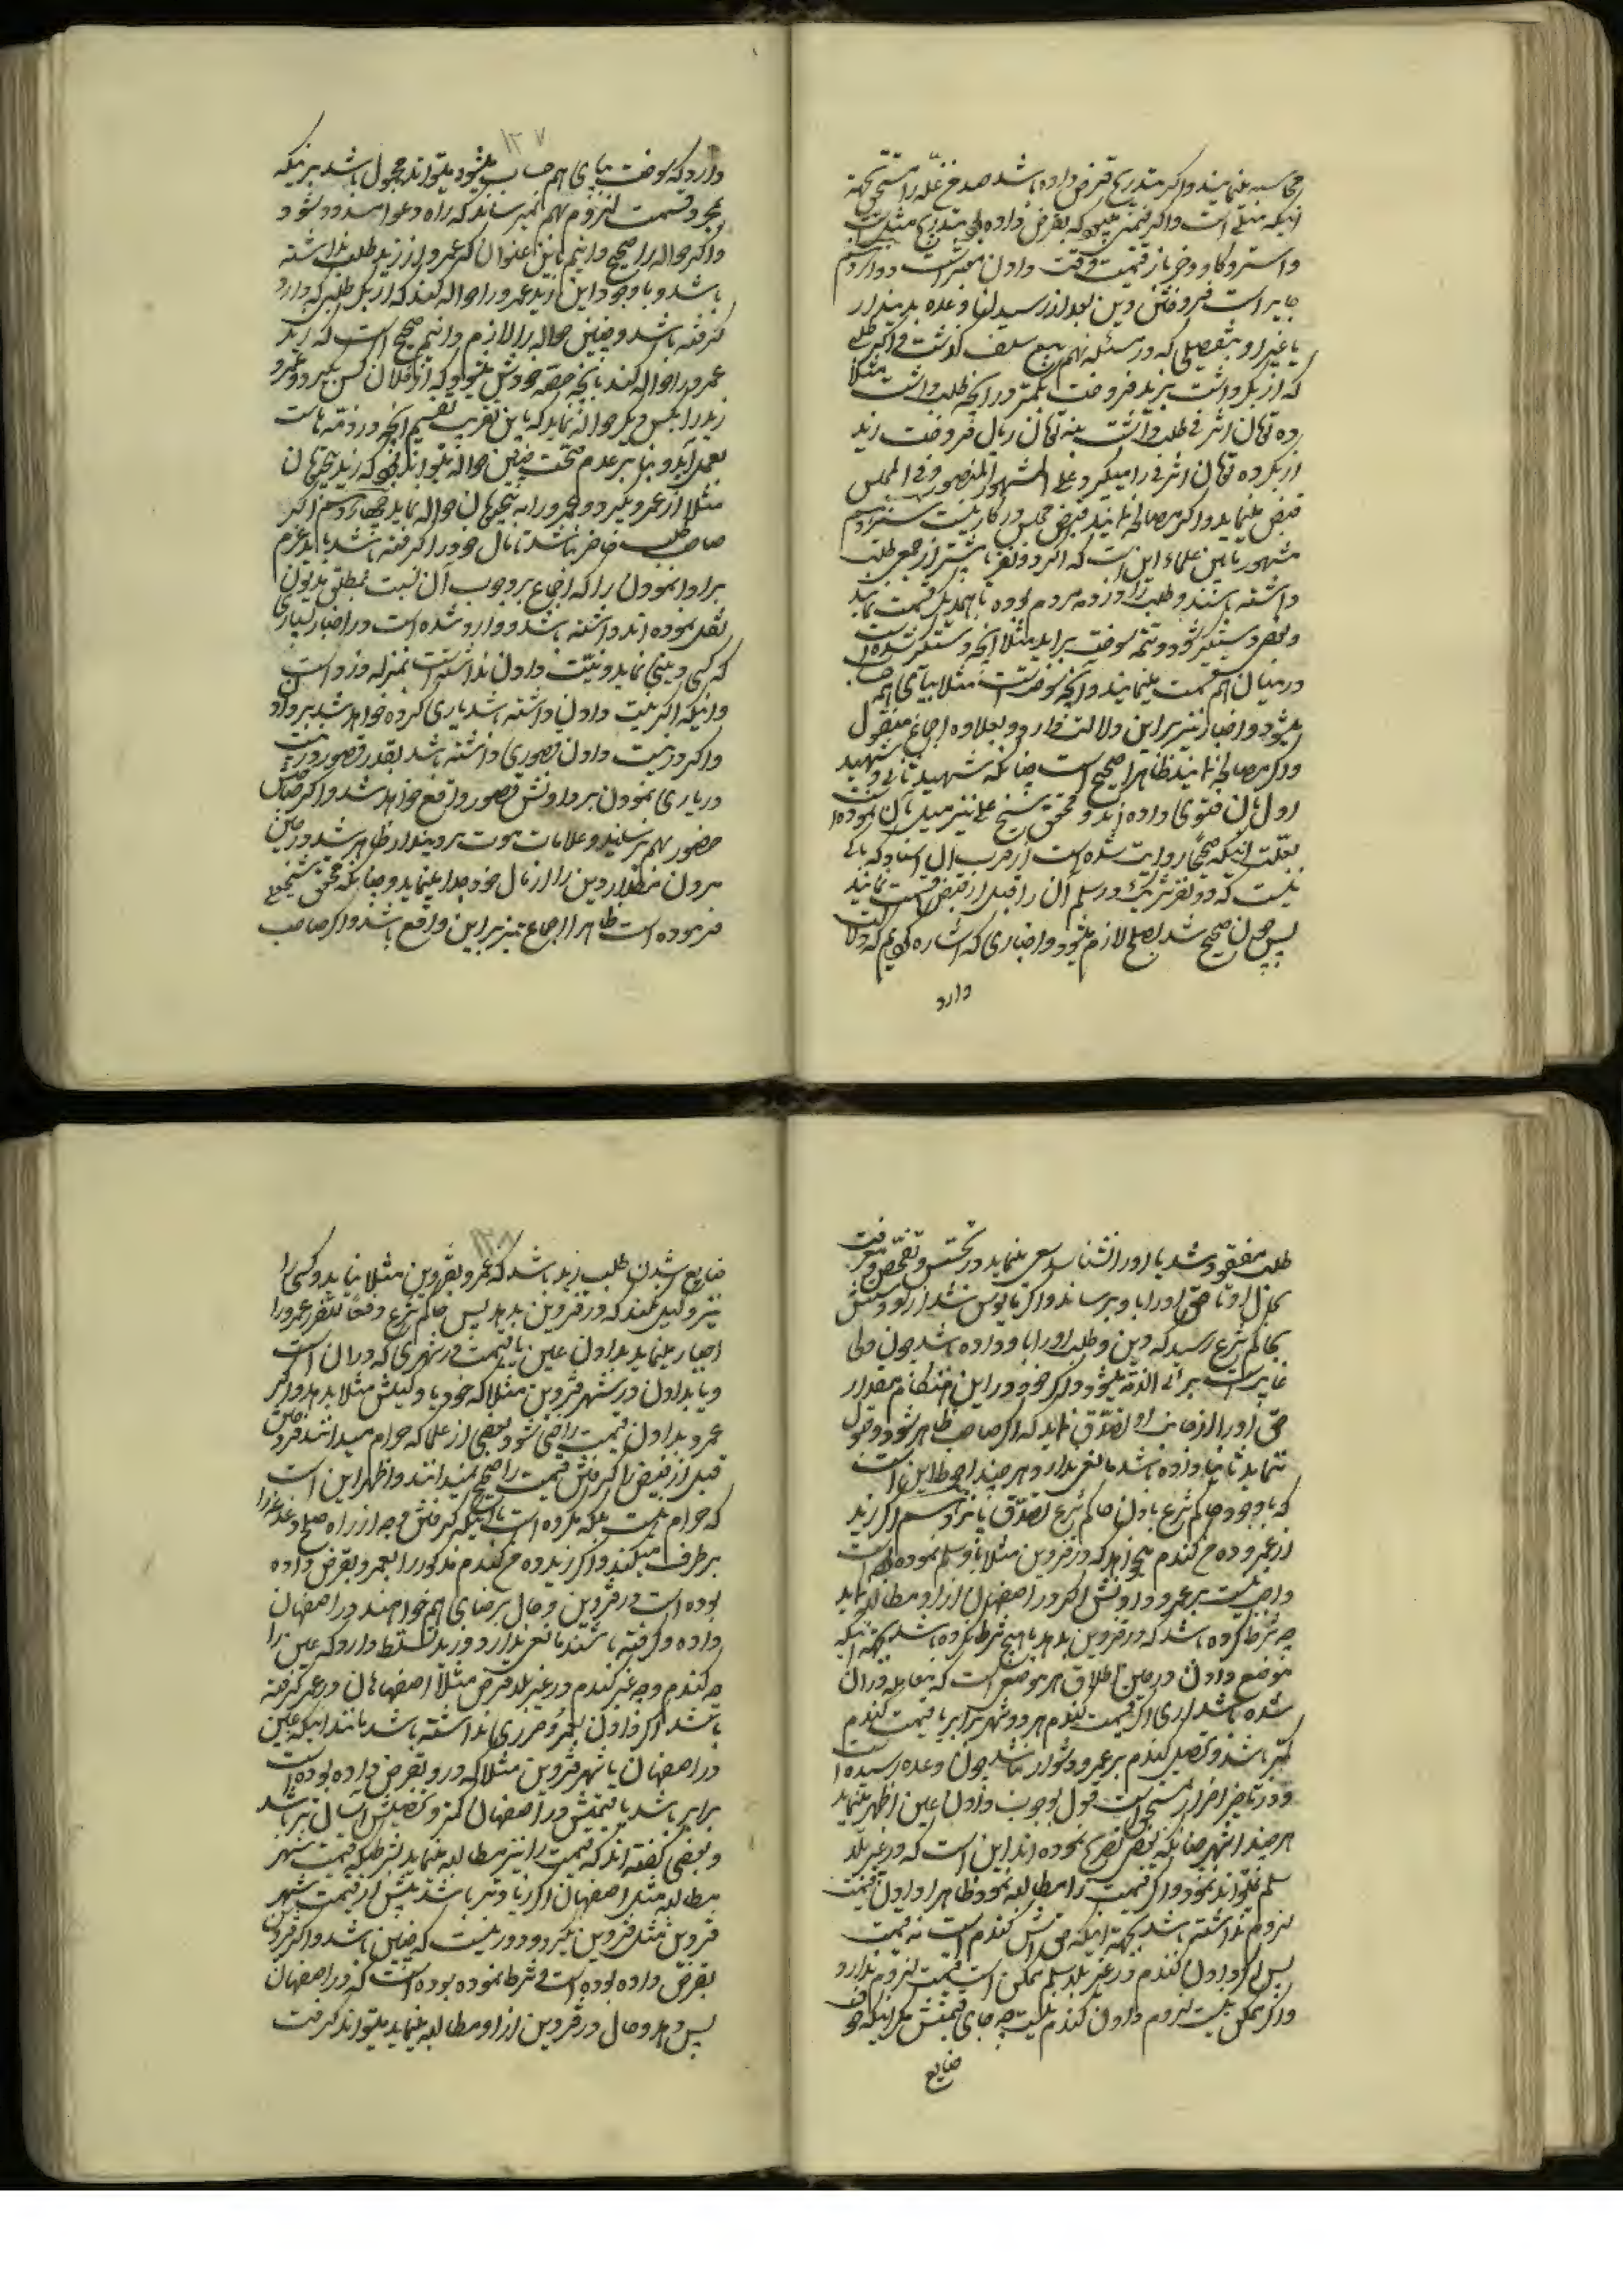 محاسبه مینمایند و اگر بتدریج قرض داده باشد صد من غله را
اینکه مثلی است و اگر قیمی که بقرض داده بتدریج مثل
و استر و گاو و خر باز قیمت وقت دادن معتبر است دوازدهم
جایز است فروختن دین بعد از رسیدن وعده بدیندار
یا غیر او بتفصیلی که در مسئله نهم بیع سلف گذشت
که از بکر داشت بزید فروخت بکمتر از آنچه طلب داشت مثلا
ده تومان اشرفی طلب داشت بنه تومان ریال فروخت زید
از بکر ده تومان اشرفی را میگیرد علی المشهور المنصور و فی المجلس
قبض مینماید و اگر مصالحه نمایند قبض مجلس در کار نیست سیزدهم
مشهور مابین علماء این است که اگر دو نفر یا بیشتر از جمعی طلب
داشته باشند و طلب را در ذمه مردم بوده با همدیگر قسمت نمایند
و بعضی دستگیر شود و تتمه سوخت برآید مثلا آنچه دستگیر شده است
در میان هم قسمت مینمایند و آنچه سوخته است مثلا بپای همه حساب
میشود و اخبار نیز بر این دلالت دارد و بعلاوه اجماع منقول
و اگر مصالحه نمایند ظاهرا صحیح است چنانکه شهید ثانی و شهید
اول بآن فتوی داده اند و محقق شیخ علی نیز میل بآن نموده است
بعلت اینکه صحیحا روایت شده است از قرب الاسناد که باکی
نیست که دو نفر شریک در سلم آن را قبل از قبض قسمت نمایند
پس چون صحیح شد بصلح لازم میشود و اخباری که اشاره کردیم که دلالت
دارد
۱۲۷
دارد که سوخت بپای هم حساب میشود میتواند محمول باشد بر اینکه
بمجرد قسمت لزوم بهم نمیرساند که راه دعوا مسدود شود
و اگر حواله را صحیح دانیم باین عنوان که عمرو از زید طلب نداشته
باشد و با وجود این زید عمرو را حواله کند که از بکر طلبی که دارد
گرفته باشد و چنین حواله را لازم دانیم صحیح است که زید
عمرو را حواله کند بآنچه حصه خودش میشود که از فلان کس بگیرد و عمرو
زید را بکس دیگر حواله نماید که باین تقریب تقسیم آنچه در ذمه هاست
بعمل آید و بنا بر عدم صحت چنین حواله میتواند بود که زید پنج تومان
مثلا از عمرو بگیرد و عمرو را به پنج تومان حواله نماید چهاردهم اگر
صاحب طلب حاضر نباشد تا مال خود را گرفته باشد باید عزم
بر ادا نمودن را که اجماع بر وجوب آن نسبت بمطلق مدیون
نقل نموده اند داشته باشد و وارد شده است در اخبار بسیاری
که کسی دینی نماید و نیت دادن نداشته است بمنزله دزد است
و اینکه اگر نیت دادن داشته باشد یاری کرده خواهد شد بر دادن
و اگر در نیت دادن قصوری داشته باشد بقدر قصور در نیت
در یاری نمودن بر دادنش قصور واقع خواهد شد و اگر صاحبش
حضور بهم نرساند و علامات موت بر دیندار ظاهر شد در حین
مردن مقدار دین را از مال خود جدا مینماید و چنانکه محقق شیخعلی
فرموده است ظاهرا اجماع نیز بر این واقع باشد و اگر صاحب
طلب مفقود شد یا او را نشناسد سعی مینماید در تجسس و تفحص و معرفت
منزل او تا حق او را باو برساند و اگر مأیوس شد از او دستش
بحاکم شرع رسید که دین و طلب او را باو داده باشد چون ولی
غایب است برائت الذمه میشود و اگر خود در این هنگام مقدار
حق او را از جانب او تصدق نماید که اگر صاحب ظاهر شود و قبول
ننماید ثانیا داده باشد مانعی ندارد و هر چند احوط این است
که با وجود حاکم شرع باذن حاکم شرع تصدق پانزدهم اگر زید
از عمرو ده من گندم میخواهد که در قزوین مثلا باو سلم نموده است
واجب نیست بر عمرو دادنش اگر در اصفهان از او مطالبه نماید
چه شرط کرده باشد که در قزوین بدهد یا هیچ شرط نکرده باشد بجهت اینکه
موضع دادن در حین اطلاق هر موضعی است که معامله در آن
شده باشد آری اگر قیمت گندم هر دو شهر برابر یا قیمت گندم
کمتر باشد و تحصیل گندم بر عمرو دشوار نباشد چون وعده رسیده است
و در تأخیر اضرار مستحق است قول بوجوب دادن عین اظهر مینماید
هر چند اشهر چنانکه بعضی تصریح نموده اند این است که در غیر بلد
سلم نمیتواند نمود و اگر قیمت را مطالبه نمود ظاهرا دادن قیمت
لزوم نداشته باشد بجهت اینکه حقش گندم است نه قیمت
پس اگر دادن گندم در غیر بلد سلم ممکن است قیمت لزوم ندارد
و اگر ممکن نیست لزوم دادن گندم نیست چه جای قیمتش مگر اینکه خوف
ضایع
۱۲۸
ضایع شدن طلب زید باشد که عمرو بقزوین مثلا نیاید و کسی را
نیز وکیل نکند که در قزوین بدهد پس حاکم شرع دفعا للضرر عمرو را
اجبار مینماید بدادن عین یا قیمت در شهری که در آن است
و یا بدادن در شهر قزوین مثلا که خود یا وکیلش مثلا بدهد و اگر
عمرو بدادن قیمت راضی شود بعضی از علما که حرام میدانند فروختن
قبل از قبض را گرفتن قیمت را صحیح نمیدانند و اظهر این است
که حرام نیست بلکه مکروه است با اینکه گرفتن وجه از راه صلح و غیره
برطرف میکند و اگر زید ده من گندم مذکور را بعمرو بقرض داده
بوده است در قزوین و حال برضای هم خواهند در اصفهان
داده و گرفته باشند مانعی ندارد و زید تسلط دارد که عین را
چه گندم و چه غیر گندم در غیر بلد قرض مثلا اصفهان در عمرو گرفته
باشد اگر دادن بعمرو ضرری نداشته باشد مانند اینکه عین
در اصفهان با شهر قزوین مثلا که در او بقرض داده بوده است
برابر باشد یا قیمتش در اصفهان کمتر و تحصیلش آسان تر باشد
و بعضی گفته اند که قیمت را نیز مطالبه مینماید بشرطیکه قیمت شهر
مطالبه مثل اصفهان اگر زیادتر باشد بیش از قیمت شهر
قزوین مثل قزوین نگیرد و دور نیست که چنین باشد و اگر در قزوین
بقرض داده بوده است و شرط نموده بوده است که در اصفهان
پس دهد و حال در قزوین از او مطالبه مینماید میتواند گرفت